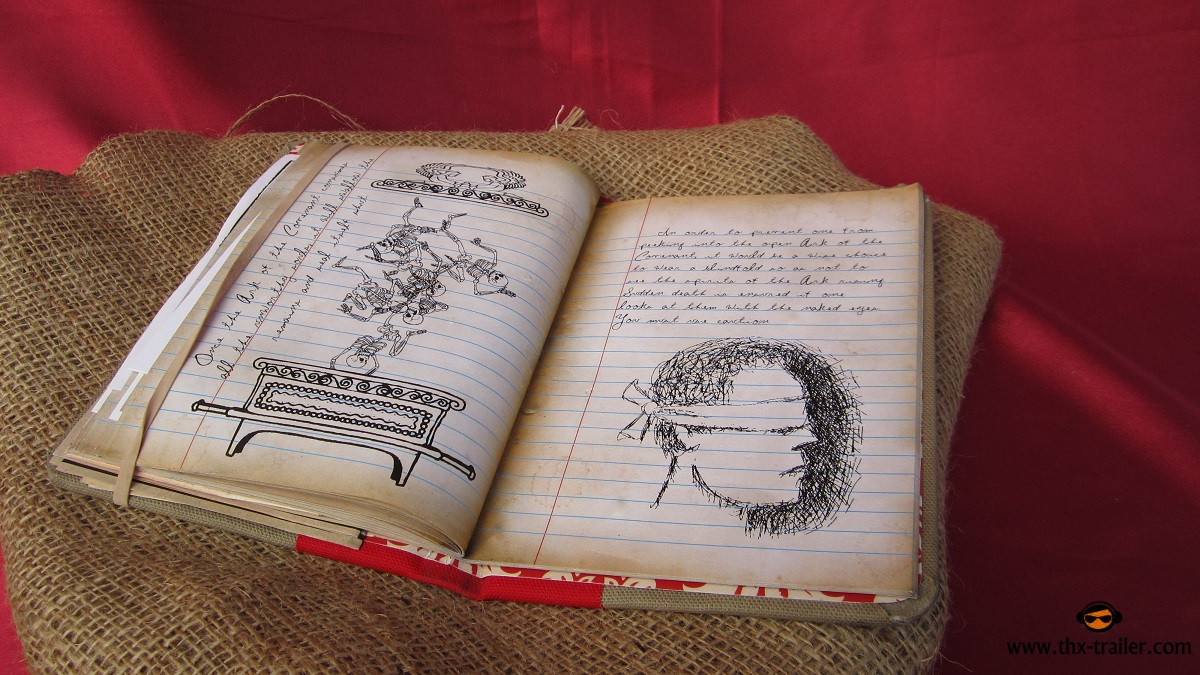 Once the Ark of the Covenant consumes
all the nonworldly intent it will swallow the
remains and seal itself shut
In order to prevent one from
peeking into the open Ark of the
Covenant it would be a wise choice
to wear a blindfold so as not to
see the spirits of the Ark
Sudden death is ensured if one
looks at them with the naked eyes
You must use caution
www.thx-trailer.com